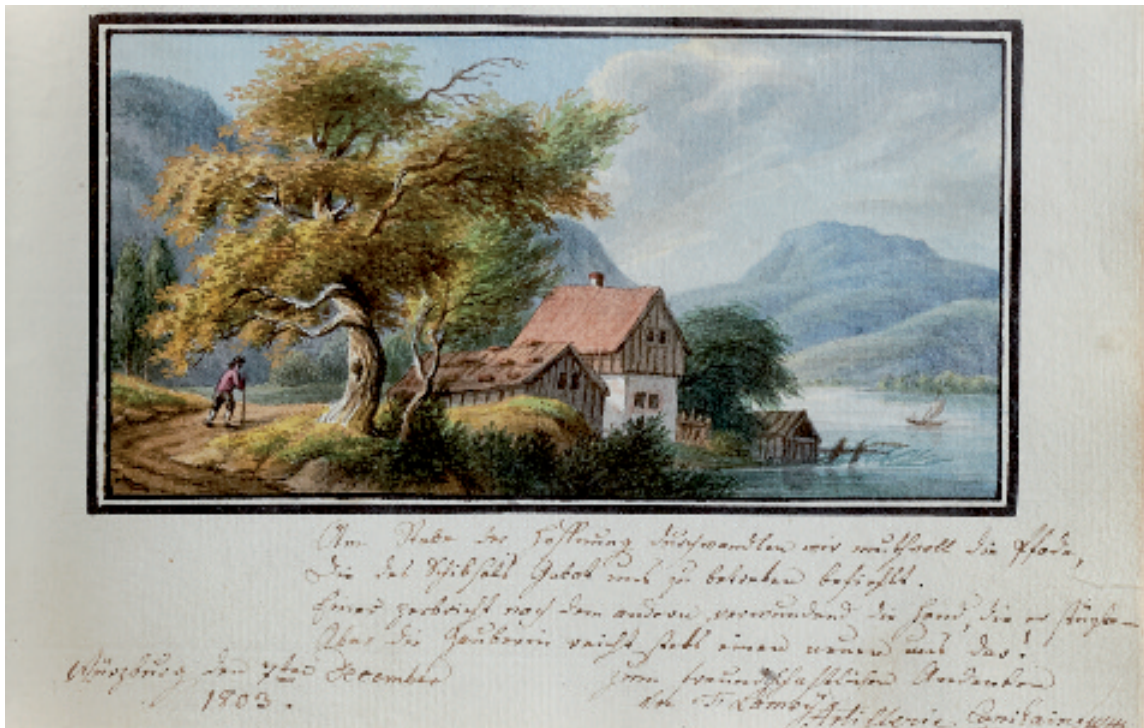 Am Stabe der Hoffnung durchwandlen wir muthvoll die Pfade,
Die des Schiksals Gebot uns zu betreten befiehlt.
Einer zerbricht nach dem andern, verwundend die Hand, die er stützte –
Aber die Zauberin reicht stets einen neuen uns dar!
Würzburg den 7ten December zum freundschaftlichen Andenken
1803. von
Artillerie Capitaine